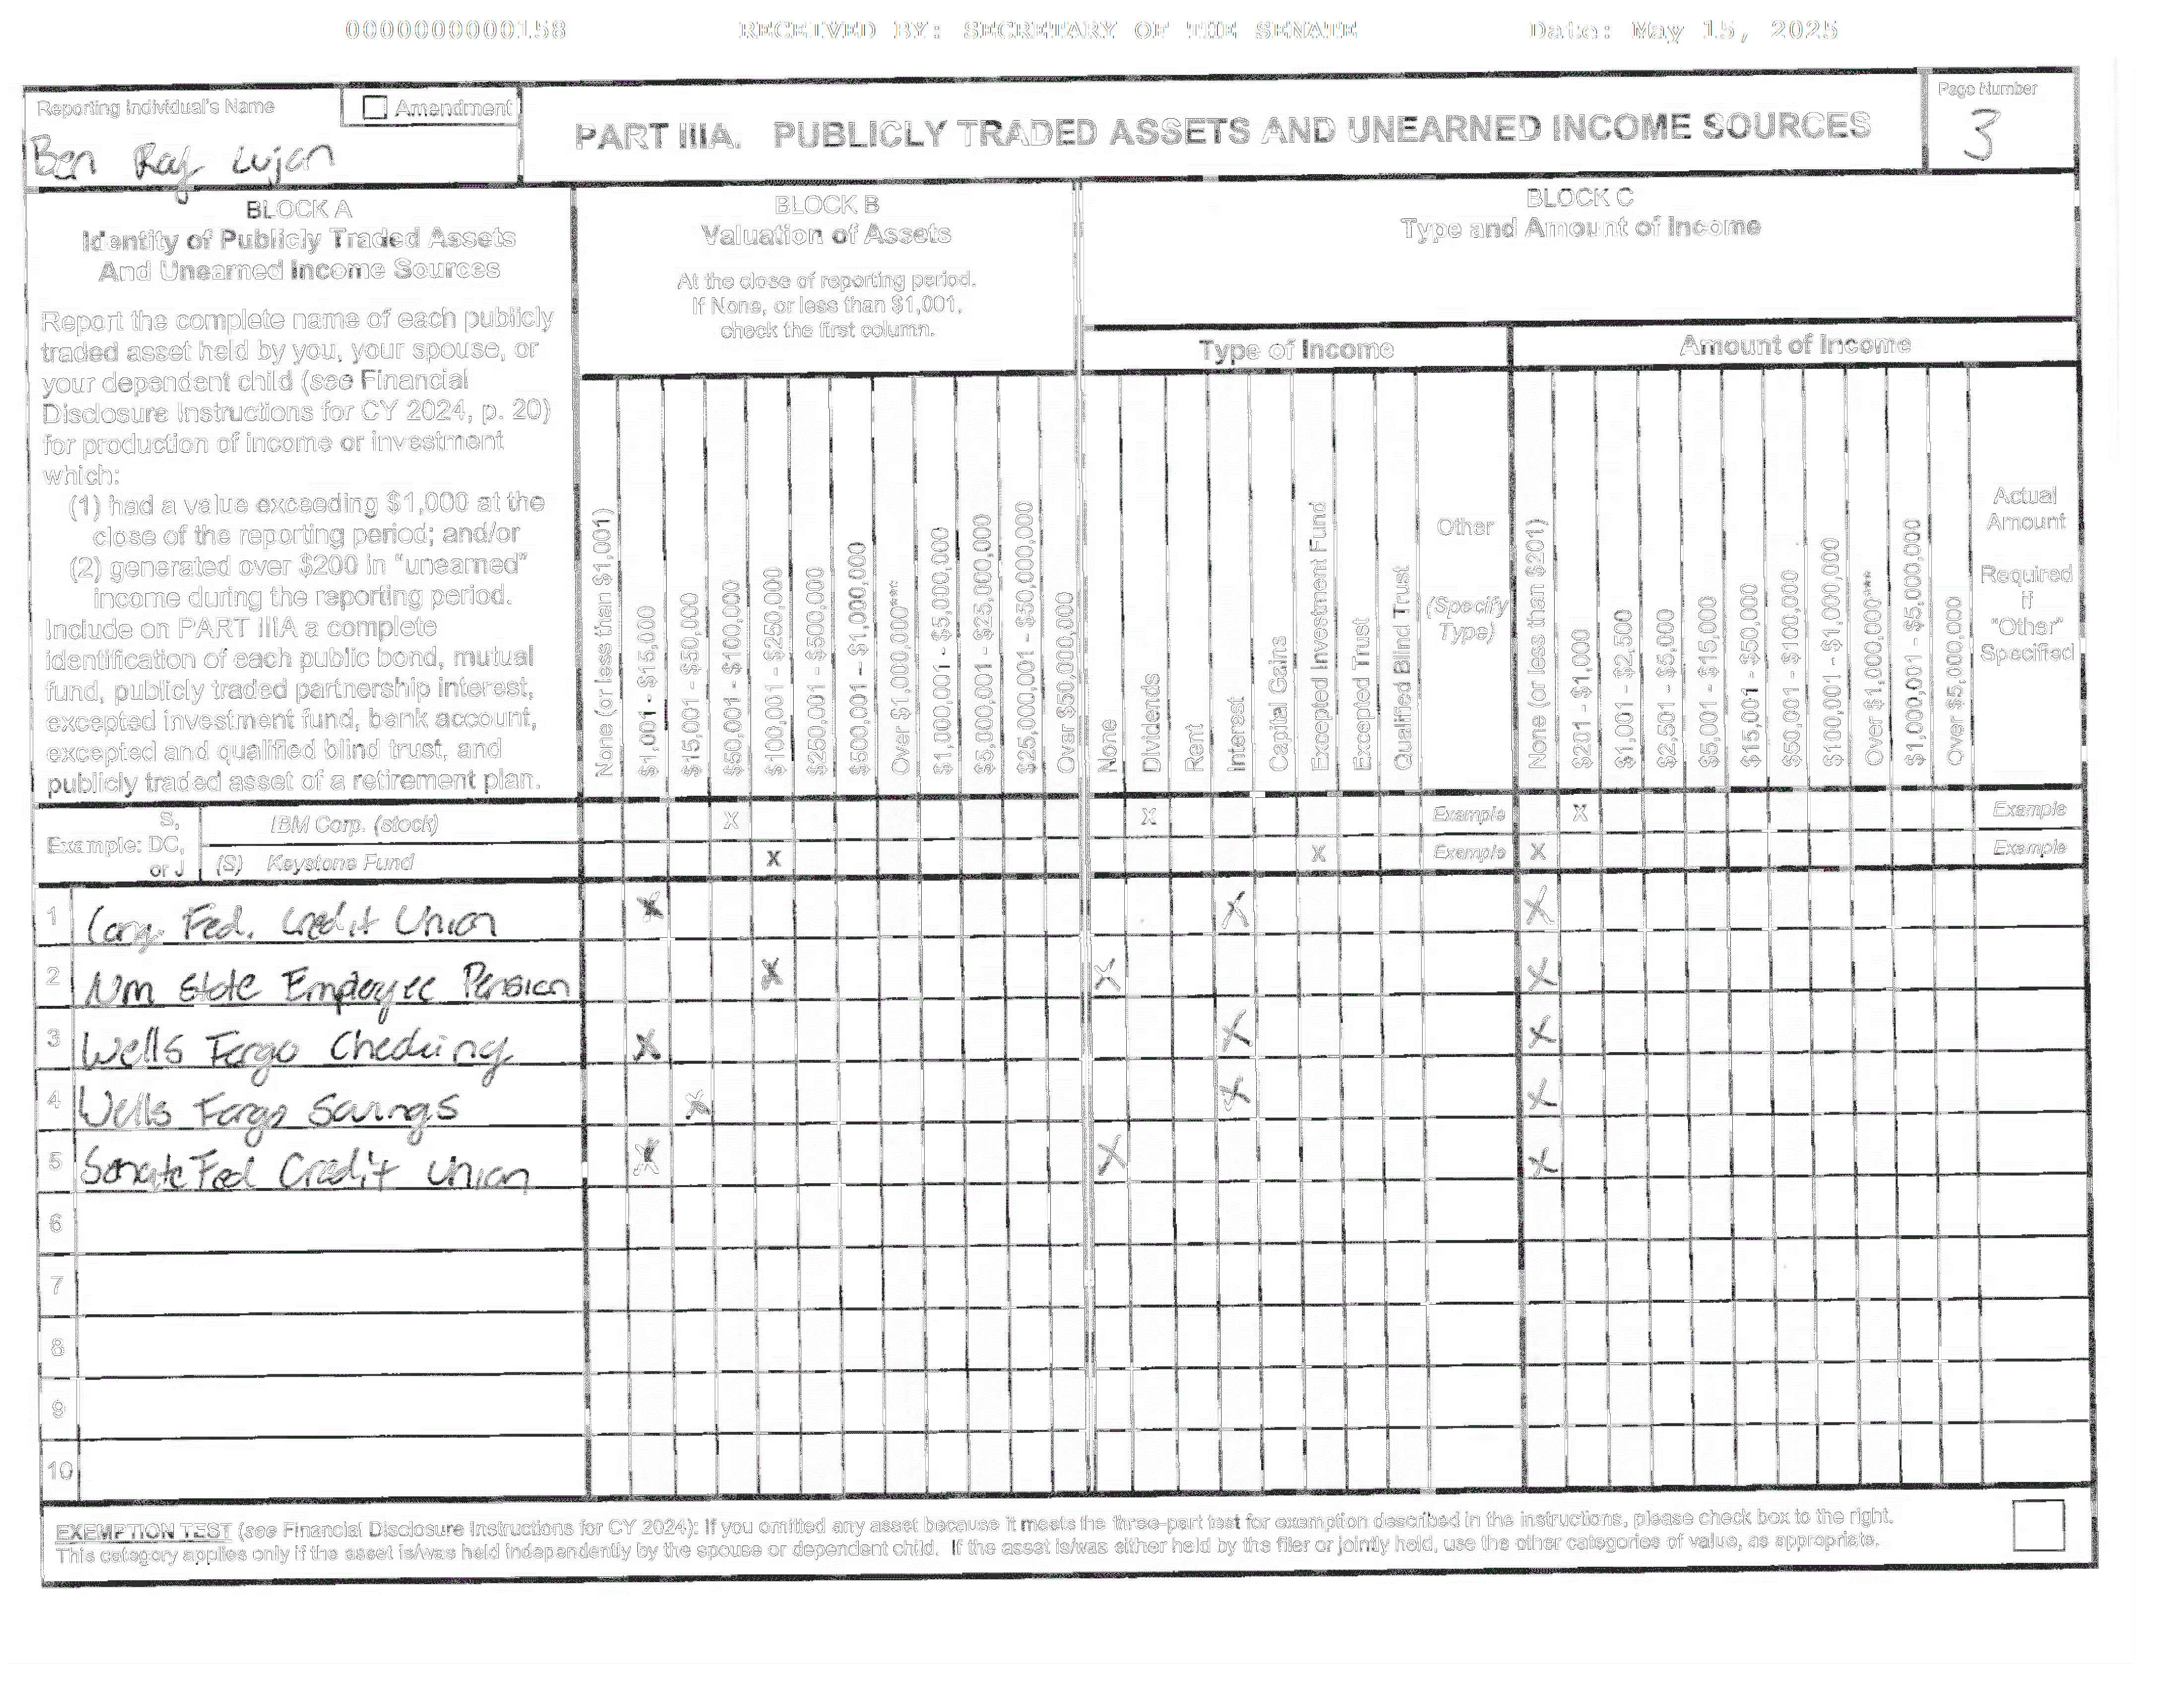 0000000000158 RECEIVED BY: SECRETARY OF THE SENATE Date: May 15, 2025
Reporting Individual's Name
Amendment
Ben Ray Lujan
PART IIIA. PUBLICLY TRADED ASSETS AND UNEARNED INCOME SOURCES
Page Number
3
BLOCK A
Identity of Publicly Traded Assets
And Unearned Income Sources
Report the complete name of each publicly
traded asset held by you, your spouse, or
your dependent child (see Financial
Disclosure Instructions for CY 2024, p. 20)
for production of income or investment
which:
(1) had a value exceeding $1,000 at the
close of the reporting period; and/or
(2) generated over $200 in "unearned"
income during the reporting period.
Include on PART IIIA a complete
identification of each public bond, mutual
fund, publicly traded partnership interest,
excepted investment fund, bank account,
excepted and qualified blind trust, and
publicly traded asset of a retirement plan.
BLOCK B
Valuation of Assets
At the close of reporting period.
If None, or less than $1,001,
check the first column.
None (or less than $1,001)
$1,001 - $15,000
$15,001 - $50,000
$50,001 - $100,000
$100,001 - $250,000
$250,001 - $500,000
$500,001 - $1,000,000
Over $1,000,000***
$1,000,001 - $5,000,000
$5,000,001 - $25,000,000
$25,000,001 - $50,000,000
Over $50,000,000
BLOCK C
Type and Amount of Income
Type of Income
None
Dividends
Rent
Interest
Capital Gains
Excepted Investment Fund
Excepted Trust
Qualified Blind Trust
Other
(Specify
Type)
Amount of Income
None (or less than $201)
$201 - $1,000
$1,001 - $2,500
$2,501 - $5,000
$5,001 - $15,000
$15,001 - $50,000
$50,001 - $100,000
$100,001 - $1,000,000
Over $1,000,000***
$1,000,001 - $5,000,000
Over $5,000,000
Actual
Amount
Required
if
"Other"
Specified
Example: S, DC, or J
IBM Corp. (stock) X X Example X Example
(S) Keystone Fund X X Example X Example
1 Cong. Fed. Credit Union X X X
2 NM State Employee Pension X X X
3 Wells Fargo Checking X X X
4 Wells Fargo Savings X X X
5 Senate Fed Credit Union X X X
6
7
8
9
10
EXEMPTION TEST (see Financial Disclosure Instructions for CY 2024): If you omitted any asset because it meets the three-part test for exemption described in the instructions, please check box to the right.
This category applies only if the asset is/was held independently by the spouse or dependent child. If the asset is/was either held by the filer or jointly held, use the other categories of value, as appropriate.